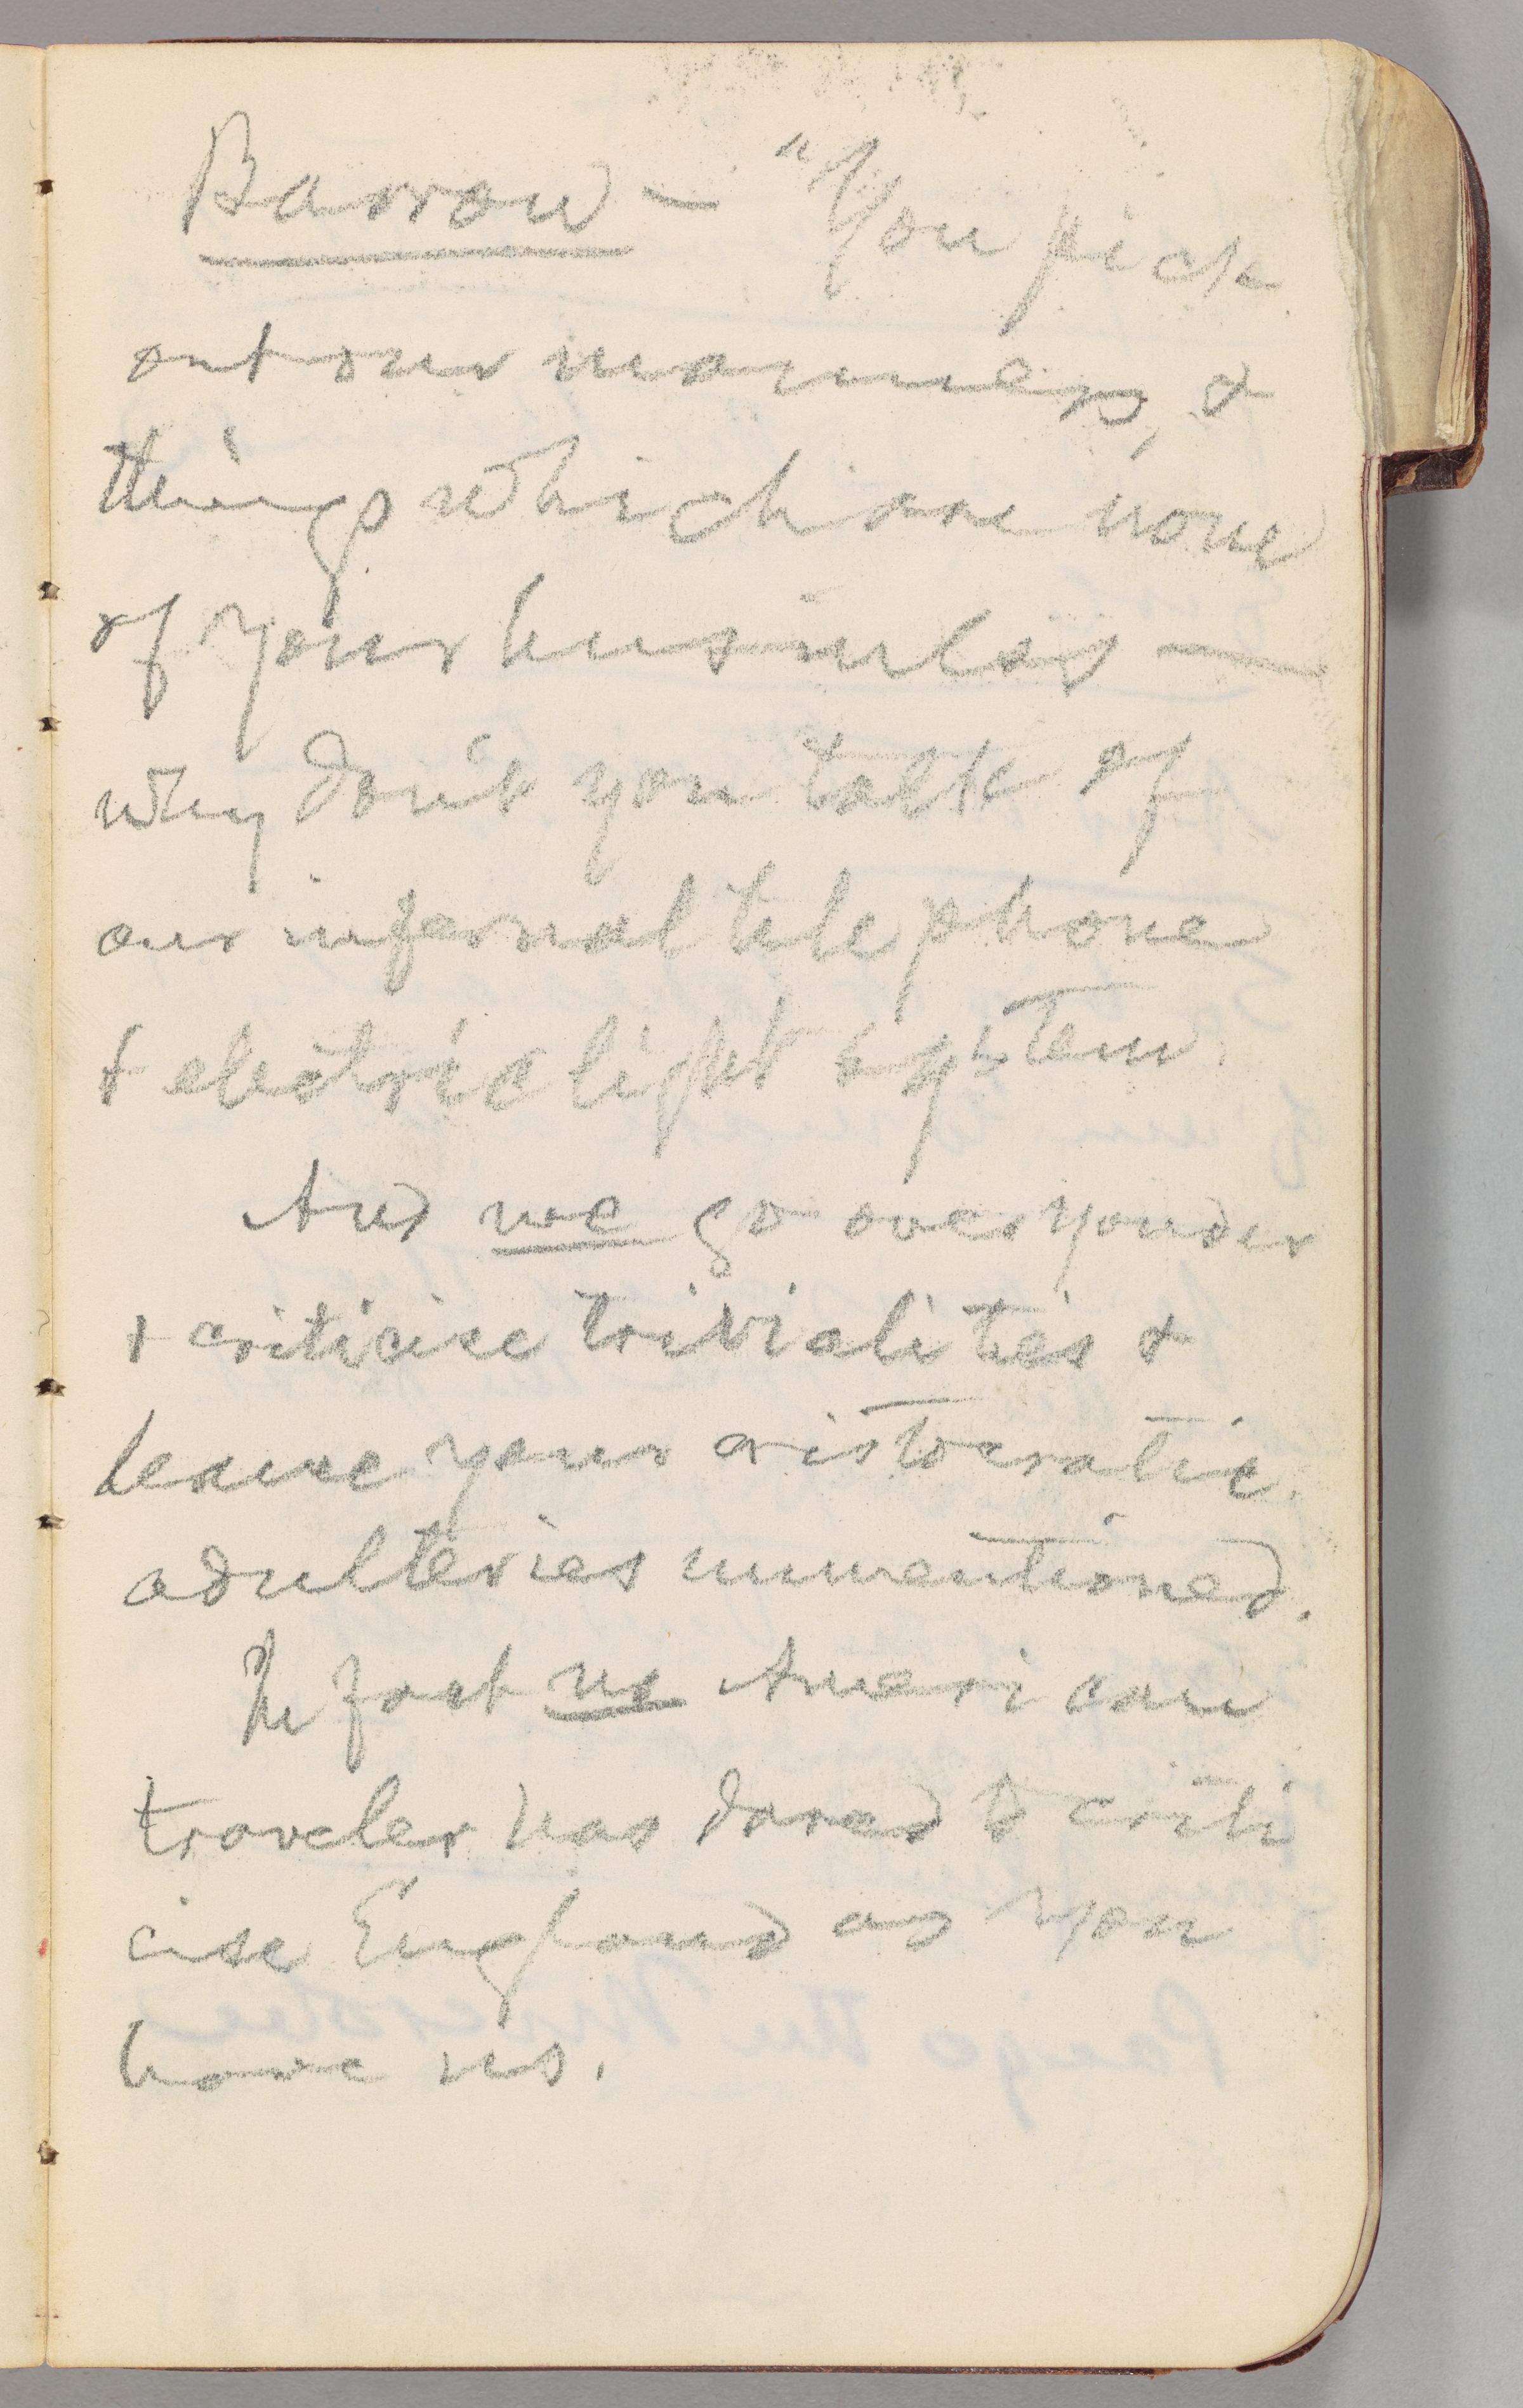 Barrow — "You pick
out our manners, &
things which are none
of your business —
why don't you talk of
our infernal telephone
& electric light system.
And we go over yonder
& criticise trivialities &
leave your aristocratic
adulteries unmentioned.
In fact no American
traveler has dared to criti
cise England as you
have us.